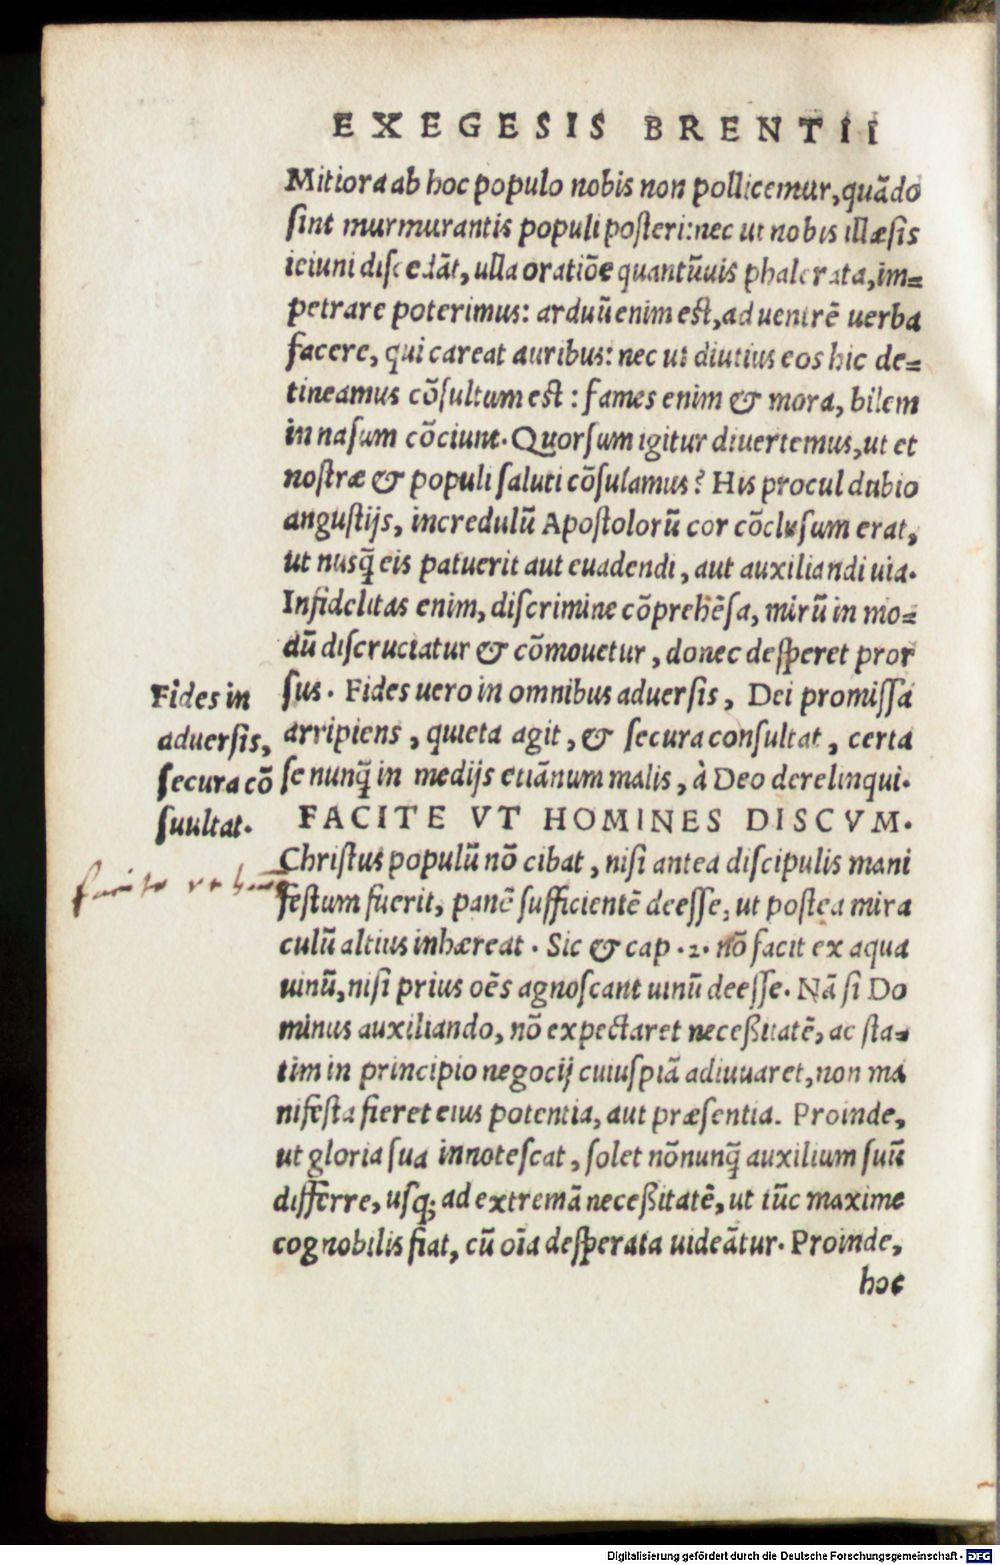 EXEGESIS BRENTII
Mitiora ab hoc populo nobis non pollicemur, quãdo
ſint murmurantis populi poſteri: nec ut nobis illæſis
ieiuni diſcedãt, ulla oratiõe quantũuis phalerata, im=
petrare poterimus: arduũ enim eſt, ad uentrẽ uerba
facere, qui careat auribus: nec ut diutius eos hic de=
tineamus cõſultum eſt : fames enim & mora, bilem
in naſum cõciunt. Quorſum igitur diuertemus, ut et
noſtræ & populi ſaluti cõſulamus? His procul dubio
anguſtijs, incredulũ Apoſtolorũ cor cõcluſum erat,
ut nusq̃ eis patuerit aut euadendi, aut auxiliandi uia.
Infidelitas enim, diſcrimine cõprehẽſa, mirũ in mo=
dũ diſcruciatur & cõmouetur, donec deſperet pror
ſus. Fides uero in omnibus aduerſis, Dei promiſſa
arripiens, quieta agit, & ſecura conſultat, certa
ſe nunq̃ in medijs etiãnum malis, à Deo derelinqui.
Fides in
aduerſis,
ſecura cõ
ſuultat.
FACITE VT HOMINES DISCVM.
facite vt hom
Chriſtus populũ nõ cibat, niſi antea diſcipulis mani
feſtum fuerit, panẽ ſufficientẽ deeſſe, ut poſtea mira
culũ altius inhæreat. Sic & cap .2. nõ facit ex aqua
uinũ, niſi prius oẽs agnoſcant uinũ deeſſe. Nã ſi Do
minus auxiliando, nõ expectaret neceßitatẽ, ac ſta=
tim in principio negocij cuiuſpiã adiuuaret, non ma
nifeſta fieret eius potentia, aut præſentia. Proinde,
ut gloria ſua innoteſcat, ſolet nõnunq̃ auxilium ſuũ
differre, uſq; ad extremã neceßitatẽ, ut tũc maxime
cognobilis fiat, cũ oĩa deſperata uideãtur. Proinde,
hoc
Digitalisierung gefördert durch die Deutsche Forschungsgemeinschaft - DFG